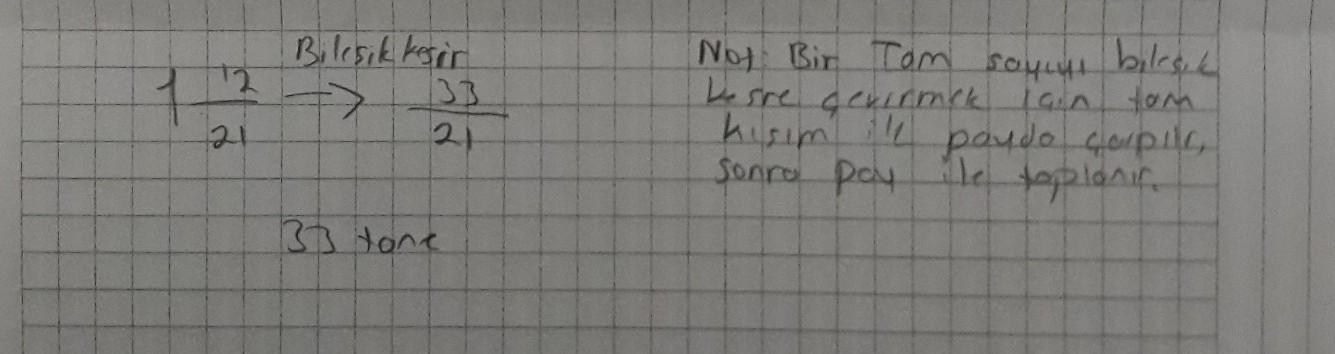 Bileşik kesir
1 12/21 → 33/21
33 tane
Not: Bir Tam sayıyı bileşik
kesre çevirmek için tam
kısım ile payda çarpılır,
sonra pay ile toplanır.